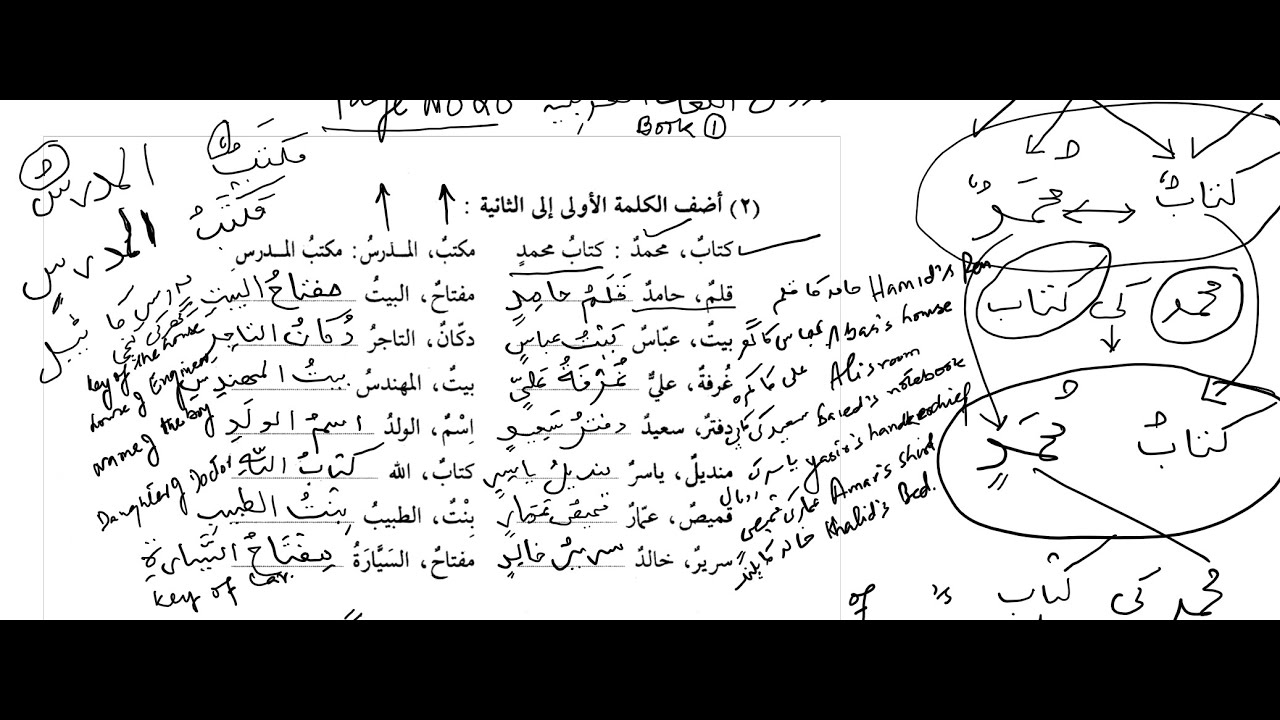 Page No 26
Book ①
(٢) أضف الكلمة الأولى إلى الثانية :
كتابٌ، محمدٌ : كتابُ محمدٍ مكتبٌ، المـدرسُ: مكتبُ المـدرسِ
قلمٌ، حامدٌ قَلَمُ حامِدٍ مفتاحٌ، البيتُ مفتاحُ البيتِ
بيتٌ، عبّاسٌ بَيْتُ عباسٍ دكّانٌ، التاجرُ دُكانُ التاجرِ
غُرفةٌ، عليٌّ غُرْفَةُ عَلِيٍّ بيتٌ، المهندسُ بيتُ المهندسِ
دفترٌ، سعيدٌ دفترُ سَعِيدٍ اِسْمٌ، الولدُ اسمُ الولَدِ
منديلٌ، ياسرٌ منديلُ ياسِرٍ كتابٌ، الله كتابُ اللّٰهِ
قميصٌ، عمّارٌ قميصُ عَمّارٍ بِنْتٌ، الطبيبُ بِنْتُ الطبيبِ
سريرٌ، خالدٌ سريرُ خالِدٍ مفتاحٌ، السَيَّارَةُ مِفْتَاحُ السَّيَّارةِ
حامد کا قلم Hamid's Pen
عباس کا گھر Abbas's house
علی کا کمرہ Ali's room
سعید کی کاپی Saied's notebook
یاسر کی رومال yasir's handkerchief
عمار کی قمیص Amar's shirt
خالد کا پلنگ Khalid's Bed.
key of the house
house of Engineer
name of the boy
Daughter of Doctor
key of Car.
مكتبٌ المدرسُ
مَكْتَبُ المدرسِ
مدرس کا ٹیبل
كتابٌ محمدٌ
محمد کی کتاب
كتابُ محمَدٍ
محمد کی کتاب
's of